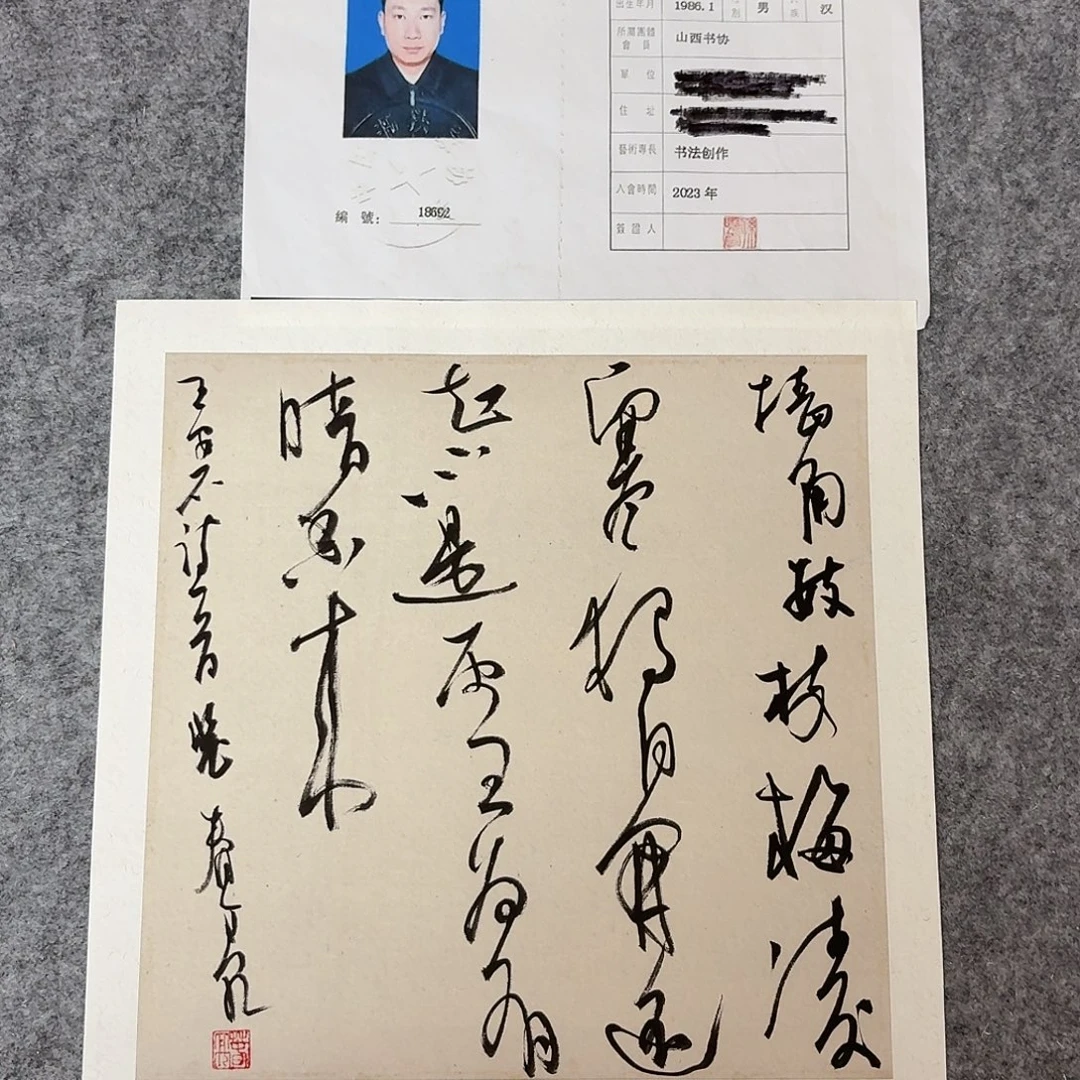 出生年月 1986.1 别 男 族 汉
所屬團體
會員 山西书协
單位
住址
藝術專長 书法创作
入會時間 2023年
簽證人
編號: 18692
墙角数枝梅凌
寒独自开遥
知不是雪为有
暗香来
王安石诗一首